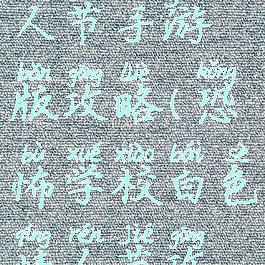 人节手游
bǎn gōng lüè kǒng
版攻略(恐
bù xué xiào bái sè
怖学校白色
qíng rén jié gōng